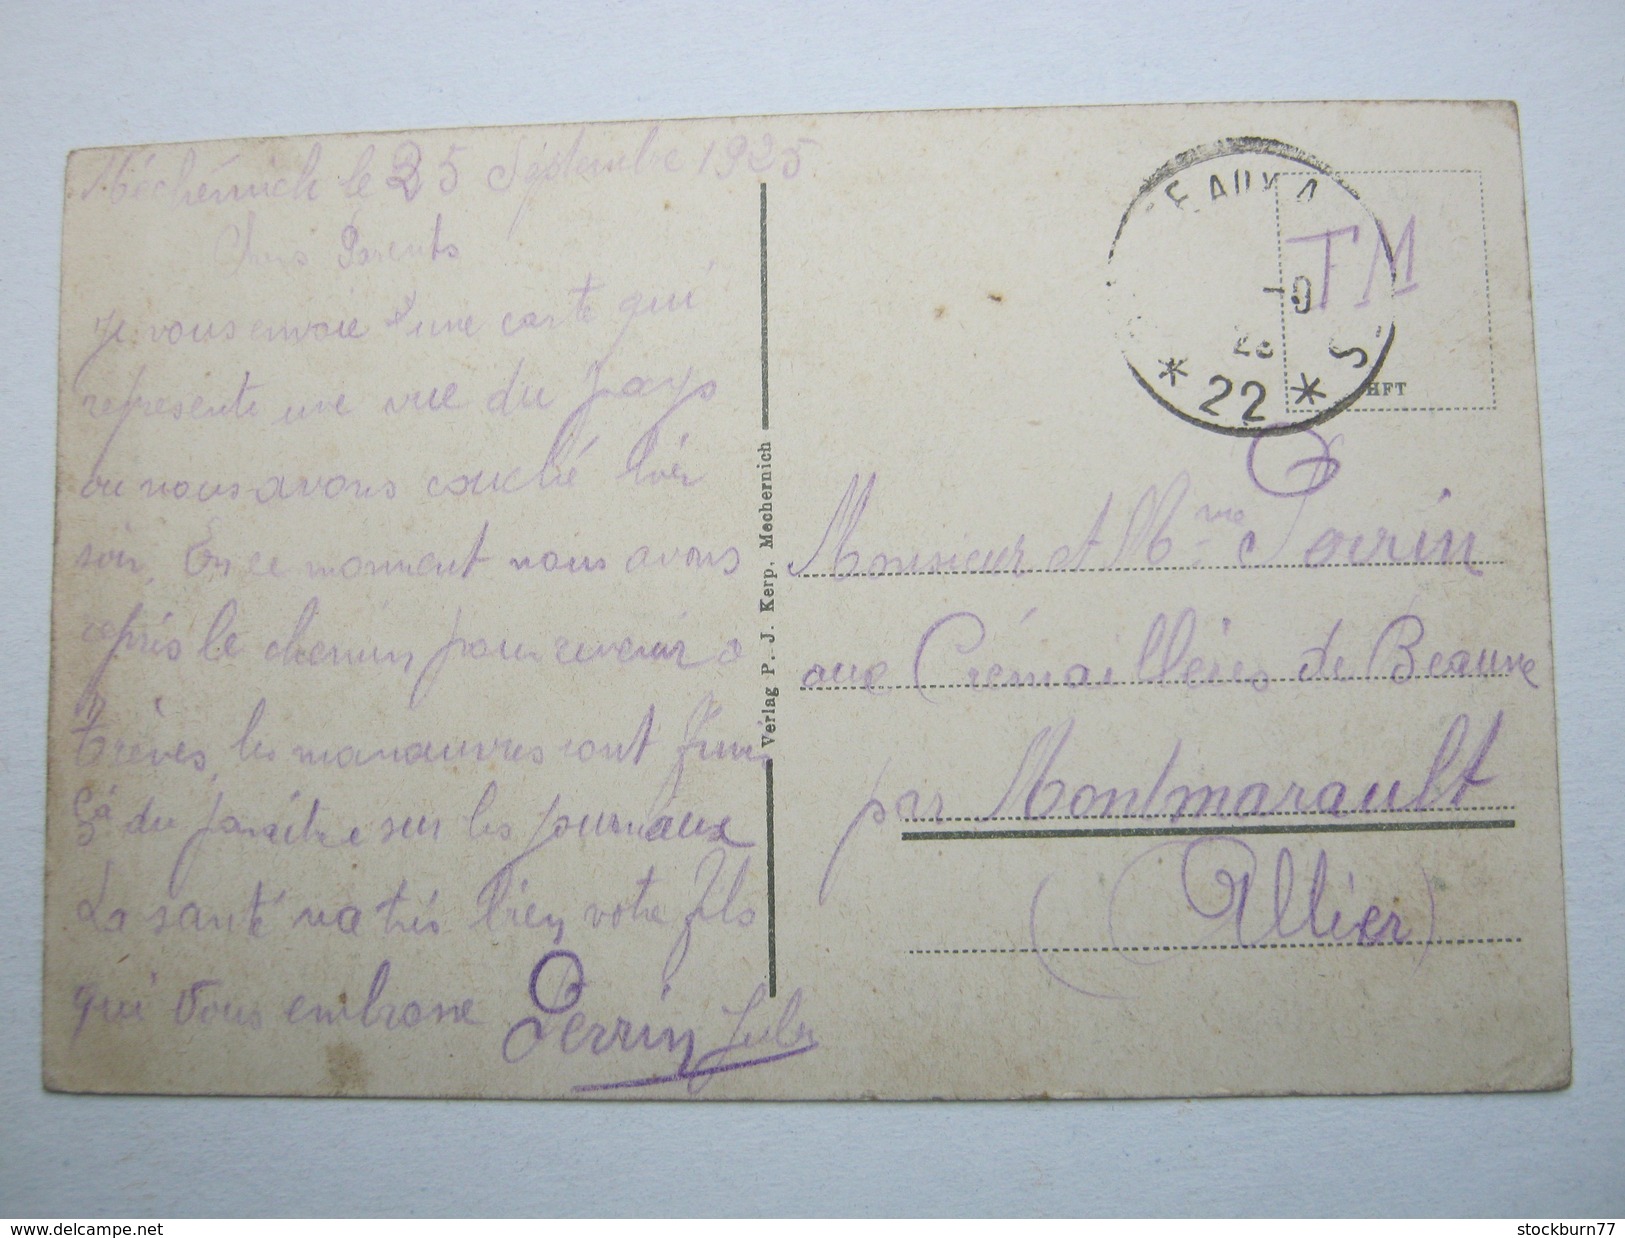 Méchérnich le 25 Septembre 1925
Chers Parents
Je vous envoie une carte qui
represente une vue du pays
ou nous avons couché hier
soir, En ce momment nous avons
après le chemin pour revenir a
Trèves, les manœuvres sont finis
ça du paraitre sur les journaux
La santé va très bien votre fils
qui vous embrasse Perrin Jules
Verlag P. J. Kerp, Mechernich
TM
* 22 * S
HFT
Monsieur et Mme Perrin
aux Crémaillères de Beaune
par Montmarault
(Allier)
delcampe.net
stockburn77